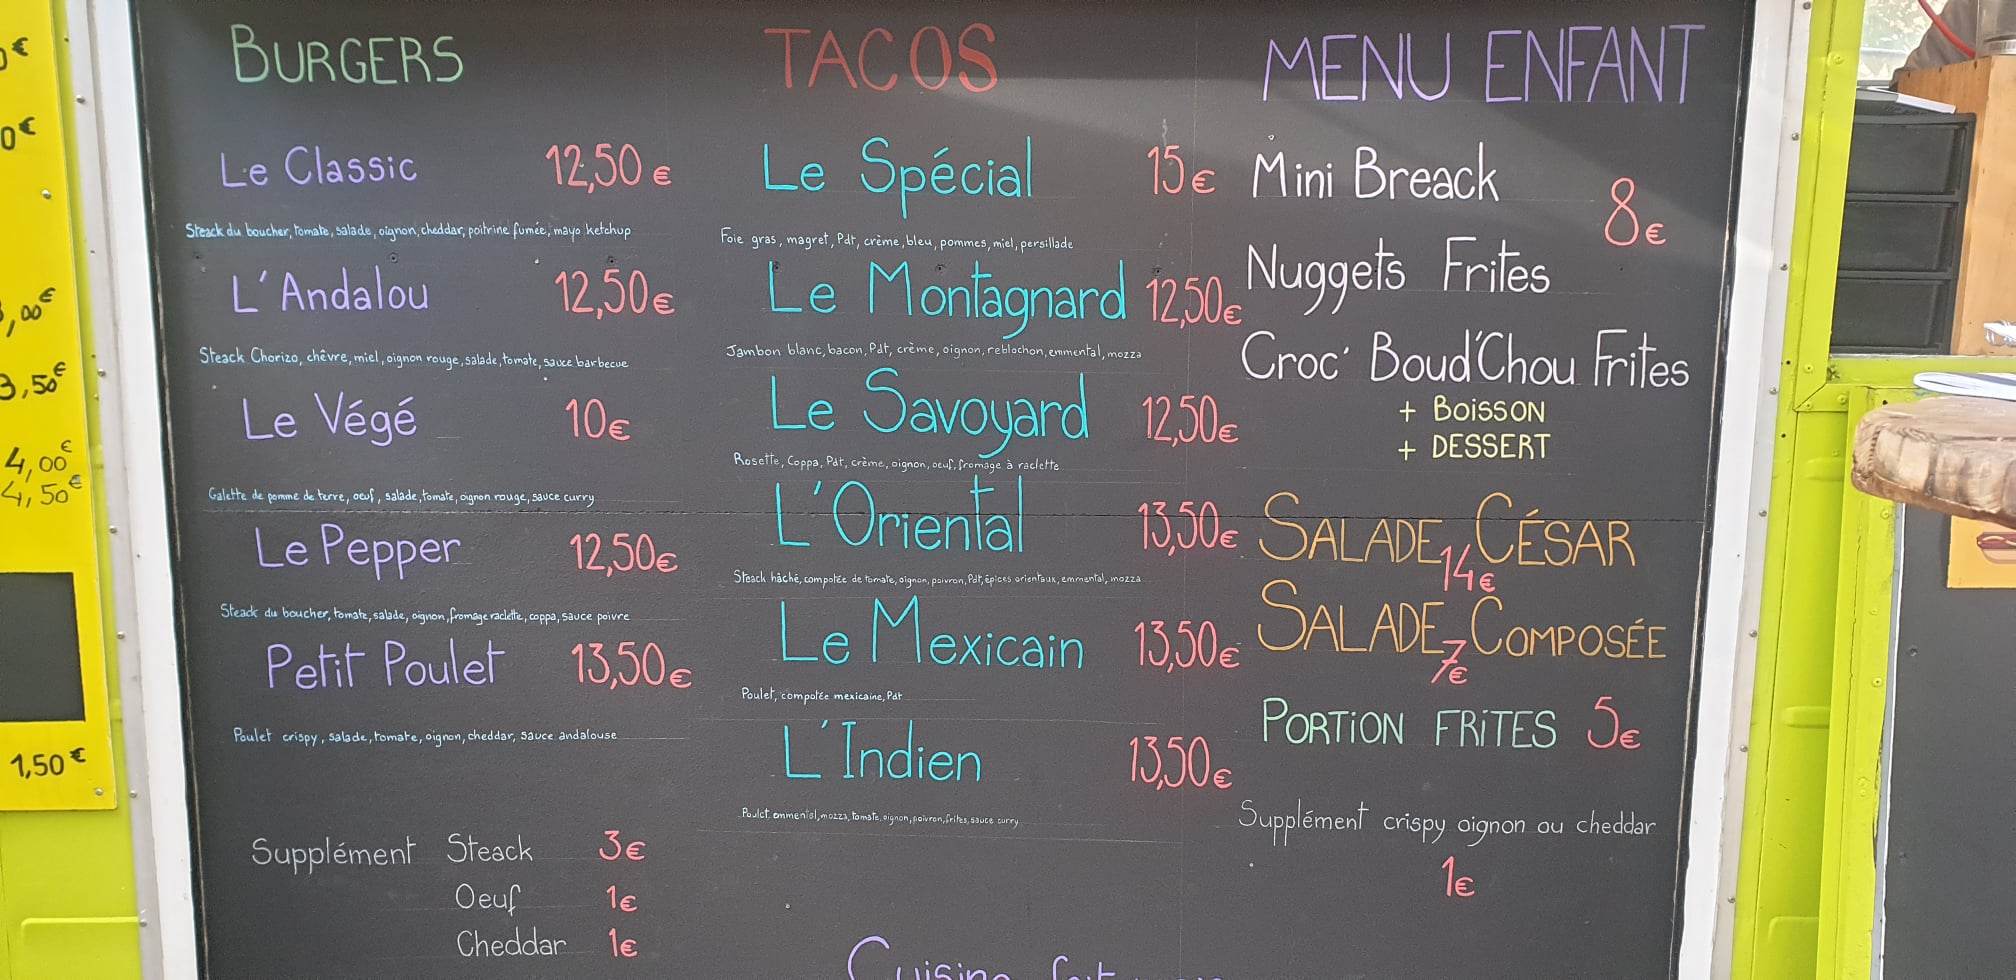 BURGERS
Le Classic 12,50€
Steack du boucher, tomate, salade, oignon, cheddar, poitrine fumée, mayo ketchup
L'Andalou 12,50€
Steack Chorizo, chêvre, miel, oignon rouge, salade, tomate, sauce barbecue
Le Végé 10€
Galette de pomme de terre, oeuf, salade, tomate, oignon rouge, sauce curry
Le Pepper 12,50€
Steack du boucher, tomate, salade, oignon, fromage raclette, coppa, sauce poivre
Petit Poulet 13,50€
Poulet crispy, salade, tomate, oignon, cheddar, sauce andalouse
Supplément Steack 3€
Oeuf 1€
Cheddar 1€
TACOS
Le Spécial 15€
Foie gras, magret, Pdt, crème, bleu, pommes, miel, persillade
Le Montagnard 12,50€
Jambon blanc, bacon, Pdt, crème, oignon, reblochon, emmental, mozza
Le Savoyard 12,50€
Rosette, Coppa, Pdt, crème, oignon, oeuf, fromage à raclette
L'Oriental 13,50€
Steack hâché, compotée de tomate, oignon, poivron, Pdt, épices orientaux, emmental, mozza
Le Mexicain 13,50€
Poulet, compotée mexicaine, Pdt
L'Indien 13,50€
Poulet emmental, mozza, tomate, oignon, poivron, frites, sauce curry
Cuisine fait
MENU ENFANT
Mini Breack
8€
Nuggets Frites
Croc' Boud'Chou Frites
+ BOISSON
+ DESSERT
SALADE CÉSAR
14€
SALADE COMPOSÉE
7€
PORTION FRITES 5€
Supplément crispy oignon ou cheddar
1€
0€
,00€
3,50€
4,00€
4,50€
1,50€